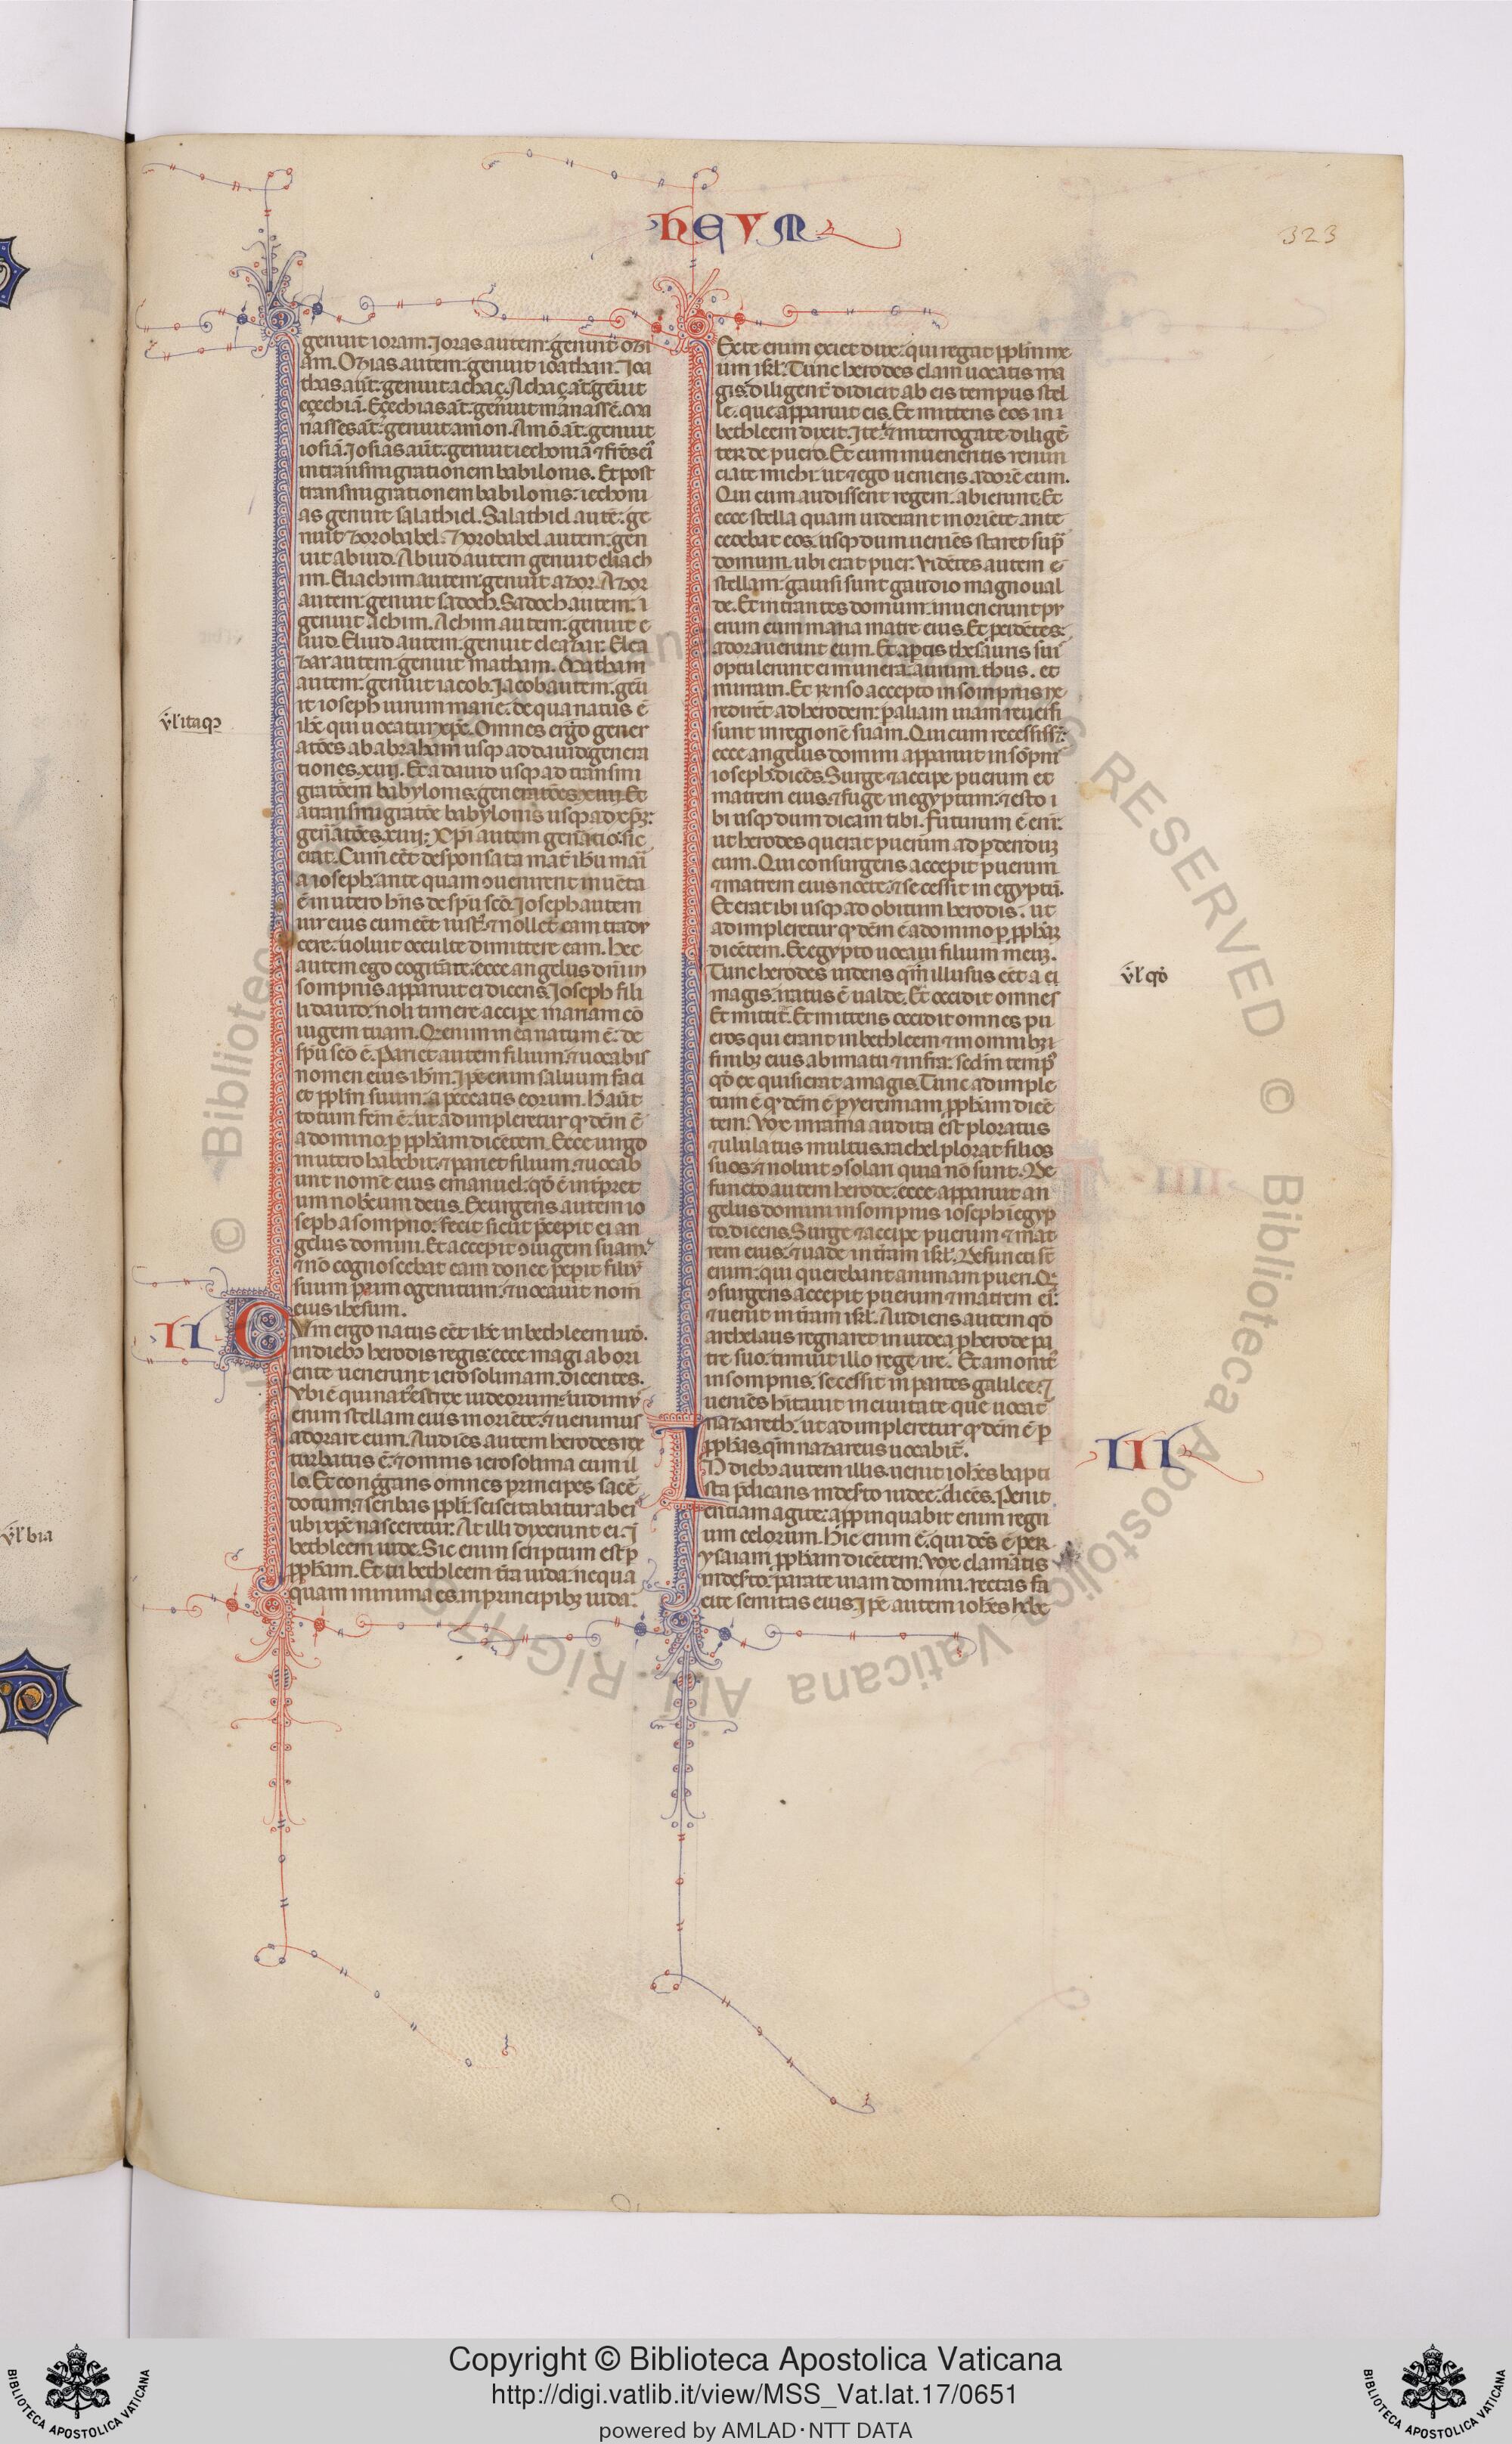 HEUM
323
genuit ioram. Ioras autem. genuit ozi
am. Ozias autem. genuit ioathan. Joa
thas aūt. genuit achaç. Achaç āt. genuit
eçechiā. Eçechias āt. genuit manassē. Ma
nasses āt. genuit amon. Amō āt. genuit
iosiā. Iosias aūt. genuit iechoniā ⁊ fr̄es eiꝰ
in transmigrationem babilonis. Et post
transmigrationem babilonis. iechoni
as genuit salathiel. Salathiel autē. ge
nuit zorobabel. Zorobabel autem. gen
uit abiud. Abiud autem genuit eliach
im. Eliachim autem. genuit azor. Azor
autem. genuit sadoch. Sadoch autem. i
genuit achim. Achim autem. genuit e
liud. Eliud autem. genuit eleazar. Elea
zar autem. genuit matham. Matham
autem. genuit iacob. Iacob autem. genu
it ioseph uirum marie. de qua natus ē
ihc̄ qui uocatur xp̄c. Omnes ergo gener
atōes ab abraham usq; ad dauid. genera
tiones xiiij. Et a dauid usq; ad transmi
gratōem babylonis. generatōes xiiij. Et
a transmigratōe babylonis usq; ad xp̄m.
gen̄atōes xiiij. Xp̄i autem gen̄atio. sic
erat. Cum eēt desponsata mat̄ ihū mari
a ioseph. ante quam ꝯuenirent inuēta
ē in utero hn̄s de sp̄u scō. Ioseph autem
uir eius cum eēt iustꝰ. ⁊ nollet eam trady
cere. uoluit occulte dimittere eam. Hec
autem ego cogitāte. ecce angelus dn̄i in
sompnis apparuit ei dicens. Ioseph fili
li dauid. noli timere accipe mariam cō
iugem tuam. Q enim in ea natum ē. de
sp̄u scō ē. Pariet autem filium. ⁊ uocabis
nomen eius ihm̄. Ip̄e enim saluum faci
et pp̄lm suum. a peccatis eorum. H aūt
totum fcm̄ ē. ut adimpleretur qd̄ dcm̄ ē
a domino. ꝑ pp̄ham dicētem. Ecce uirgo
in utero habebit. ⁊ pariet filium. ⁊ uocab
unt nomē eius emanuel. qd̄ ē int̄pret
um nob̄cum deus. Exurgens autem io
seph a sompno. fecit sicut p̄cepit ei an
gelus domini. Et accepit ꝯiugem suam.
⁊ nō cognoscebat eam donec peperit filiū
suum prim ogenitum. ⁊ uocauit nom̄
eius ihesum.
II
Cum ergo natus eēt ihc̄ in bethleem iudē.
in diebꝫ herodis regis. ecce magi ab ori
ente uenerunt ierosolimam. dicentes.
Vbi ē qui natꝰ est rex iudeorum. uidimꝰ
enim stellam eius in oriēte. ⁊ uenimus
adorare eum. Audiēs autem herodes rex
turbatus ē. ⁊ omnis ierosolima cum il
lo. Et congreg̃ans omnes principes sacē
dotum. ⁊ scribas pp̄li. sciscitabatur ab ei
ubi xp̄c nasceretur. At illi dixerunt ei. I
bethleem iude. Sic enim scriptum est ꝑ
pp̄ham. Et tu bethleem t̄ra iuda. nequa
quam minima es. in principibꝫ iuda.
v̄l itaqꝫ
v̄l bia
Ex te enim exiet dux. qui regat pp̄lm me
um isrl̄. Tunc herodes clam uocatis ma
gis. diligent̄ didicit ab eis tempus stel
le. que apparuit eis. Et mittens eos in i
bethleem dixit. Ite. ⁊ interrogate diligē
ter de puero. Et cum inueneritis renun
ciate michi. ut ⁊ ego ueniens. adorē eum.
Qui cum audissent regem. abierunt. Et
ecce stella quam uiderant in oriēte. ante
cedebat eos. usq; dum ueniēs staret sup̄
domum. ubi erat puer. Vidētes autem e
stellam. gauisi sunt gaudio magno ual
de. Et intrantes domum. inuenerunt py
erum cum maria matre eius. Et prcidētes.
adorauerunt eum. Et ap̄tis thesauris sui
optulerunt ei munera. aurum. thus. et
mirram. Et r̄nso accepto in sompnis ne
redirēt ad herodem. ꝑ aliam uiam reuersi
sunt in regionē suam. Qui cum recessissēt.
ecce angelus domini apparuit in sōpni
ioseph. dicēs. Surge. ⁊ accipe puerum et
matrem eius. ⁊ fuge in egyptum. ⁊ esto i
bi usq; dum dicam tibi. Futurum ē eni.
ut herodes querat puerum ad ꝑdendūꝫ
eum. Qui consurgens accepit puerum
⁊ matrem eius nocte. ⁊ secessit in egyptū.
Et erat ibi usq; ad obitum herodis. ut
adimpleretur qd̄ dcm̄ ē a domino ꝑ pp̄hāꝫ
dicētem. Ex egypto uocaui filium meuꝫ.
Tunc herodes uidens qm̄ illusus eēt a ei
magis. iratus ē ualde. Et occidit omnes
Et mittit. Et mittens occidit omnes pu
eros qui erant in bethleem ⁊ in omnibꝫ i
finibꝫ eius a bimatu ⁊ infra. scdm̄ tempꝰ
qd̄ ex quisierat a magis. Tunc adimple
tum ē qd̄ dcm̄ ē ꝑ yeremiam pp̄ham dicē
tem. Vox in rama audita est ploratus
⁊ ululatus multus. rachel plorat filios
suos. ⁊ noluit ꝯsolari quia nō sunt. De
functo autem herode. ecce apparuit an
gelus domini in sompnis ioseph i egyp
to. dicens. Surge ⁊ accipe puerum ⁊ mat
rem eius. ⁊ uade in t̄ram isrl̄. Defuncti st̄
enim. qui querebant animam pueri. Q
ꝯsurgens accepit puerum ⁊ matrem eiꝰ.
⁊ uenit in t̄ram isrl̄. Audiens autem qd̄
archelaus regnaret in iudea ꝑ herode pa
tre suo. timuit illo regē ire. Et amonitꝰ
in sompnis. secessit in partes galilee. ⁊
ueniēs hītauit in ciuitate que uocat
nazareth. ut adimpleretur qd̄ dcm̄ ē ꝑ
pp̄has. qm̄ nazareus uocabit̄.
III
In diebꝫ autem illis. uenit ioh̄es bapti
sta p̄dicans in des̄to iudee. dicēs. Penit
entiam agite. appinquabit enim regn
um celorum. Hic enim ē. qui dc̄s ē per
ysaiam pp̄ham dicētem. Vox clamātis
in des̄to. parate uiam domini. rectas fa
cite semitas eius. Ip̄e autem ioh̄es habe
v̄l qd̄
Copyright © Biblioteca Apostolica Vaticana
http://digi.vatlib.it/view/MSS_Vat.lat.17/0651
powered by AMLAD·NTT DATA
BIBLIOTECA APOSTOLICA VATICANA
BIBLIOTECA APOSTOLICA VATICANA
© Biblioteca Apostolica Vaticana ALL RIGHTS RESERVED